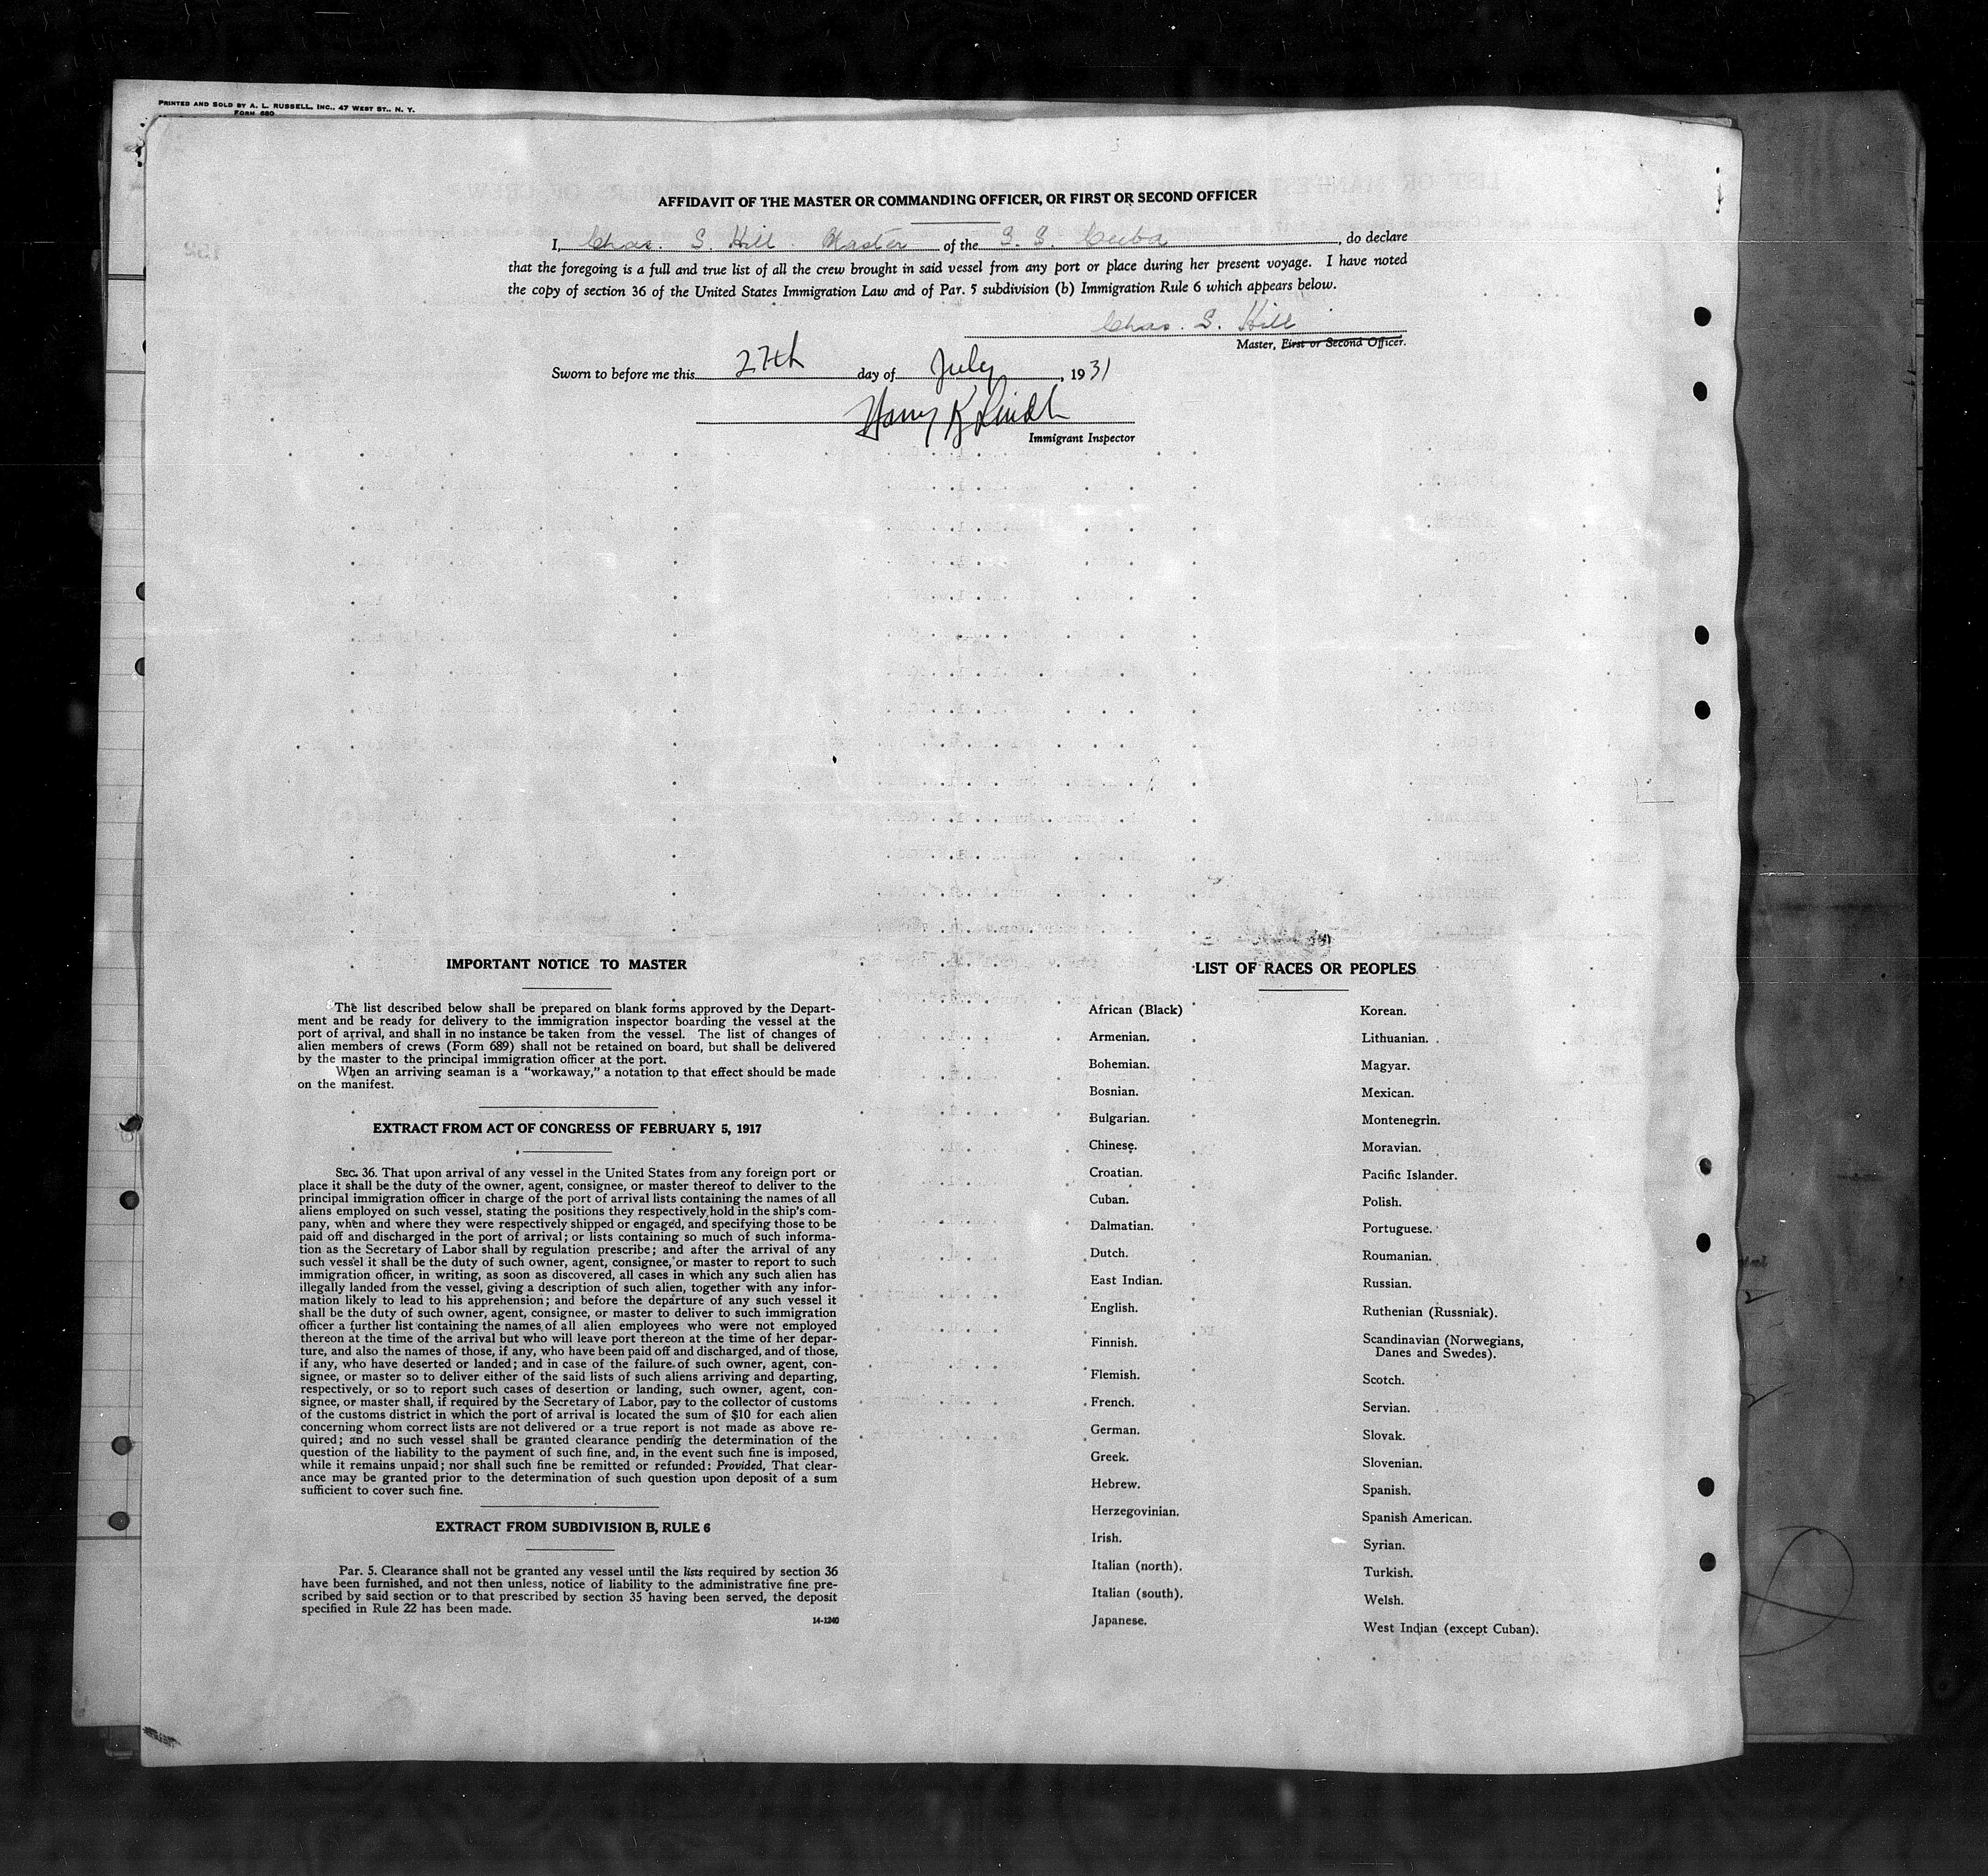 PRINTED AND SOLD BY A. L. RUSSELL, INC., 47 WEST ST., N. Y.
FORM 680
AFFIDAVIT OF THE MASTER OR COMMANDING OFFICER, OR FIRST OR SECOND OFFICER
I, Chas. S. Hill Master of the S. S. Cuba, do declare
that the foregoing is a full and true list of all the crew brought in said vessel from any port or place during her present voyage. I have noted
the copy of section 36 of the United States Immigration Law and of Par. 5 subdivision (b) Immigration Rule 6 which appears below.
Chas. S. Hill
Master, First or Second Officer.
Sworn to before me this 27th day of July, 1931
Harry K
Immigrant Inspector
IMPORTANT NOTICE TO MASTER
The list described below shall be prepared on blank forms approved by the Depart-
ment and be ready for delivery to the immigration inspector boarding the vessel at the
port of arrival, and shall in no instance be taken from the vessel. The list of changes of
alien members of crews (Form 689) shall not be retained on board, but shall be delivered
by the master to the principal immigration officer at the port.
When an arriving seaman is a "workaway," a notation to that effect should be made
on the manifest.
EXTRACT FROM ACT OF CONGRESS OF FEBRUARY 5, 1917
SEC. 36. That upon arrival of any vessel in the United States from any foreign port or
place it shall be the duty of the owner, agent, consignee, or master thereof to deliver to the
principal immigration officer in charge of the port of arrival lists containing the names of all
aliens employed on such vessel, stating the positions they respectively hold in the ship's com-
pany, when and where they were respectively shipped or engaged, and specifying those to be
paid off and discharged in the port of arrival; or lists containing so much of such informa-
tion as the Secretary of Labor shall by regulation prescribe; and after the arrival of any
such vessel it shall be the duty of such owner, agent, consignee, or master to report to such
immigration officer, in writing, as soon as discovered, all cases in which any such alien has
illegally landed from the vessel, giving a description of such alien, together with any infor-
mation likely to lead to his apprehension; and before the departure of any such vessel it
shall be the duty of such owner, agent, consignee, or master to deliver to such immigration
officer a further list containing the names of all alien employees who were not employed
thereon at the time of the arrival but who will leave port thereon at the time of her depar-
ture, and also the names of those, if any, who have been paid off and discharged, and of those,
if any, who have deserted or landed; and in case of the failure of such owner, agent, con-
signee, or master so to deliver either of the said lists of such aliens arriving and departing,
respectively, or so to report such cases of desertion or landing, such owner, agent, con-
signee, or master shall, if required by the Secretary of Labor, pay to the collector of customs
of the customs district in which the port of arrival is located the sum of $10 for each alien
concerning whom correct lists are not delivered or a true report is not made as above re-
quired; and no such vessel shall be granted clearance pending the determination of the
question of the liability to the payment of such fine, and, in the event such fine is imposed,
while it remains unpaid; nor shall such fine be remitted or refunded: Provided, That clear-
ance may be granted prior to the determination of such question upon deposit of a sum
sufficient to cover such fine.
EXTRACT FROM SUBDIVISION B, RULE 6
Par. 5. Clearance shall not be granted any vessel until the lists required by section 36
have been furnished, and not then unless, notice of liability to the administrative fine pre-
scribed by said section or to that prescribed by section 35 having been served, the deposit
specified in Rule 22 has been made.
14-1240
LIST OF RACES OR PEOPLES
African (Black)
Armenian.
Bohemian.
Bosnian.
Bulgarian.
Chinese.
Croatian.
Cuban.
Dalmatian.
Dutch.
East Indian.
English.
Finnish.
Flemish.
French.
German.
Greek.
Hebrew.
Herzegovinian.
Irish.
Italian (north).
Italian (south).
Japanese.
Korean.
Lithuanian.
Magyar.
Mexican.
Montenegrin.
Moravian.
Pacific Islander.
Polish.
Portuguese.
Roumanian.
Russian.
Ruthenian (Russniak).
Scandinavian (Norwegians,
Danes and Swedes).
Scotch.
Servian.
Slovak.
Slovenian.
Spanish.
Spanish American.
Syrian.
Turkish.
Welsh.
West Indian (except Cuban).